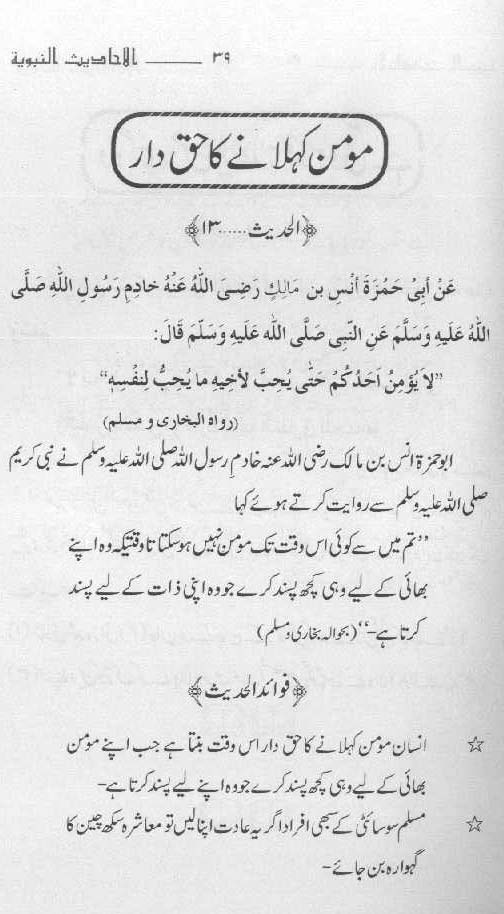 الاحادیث النبویة ــــــــ ۳۹
مومن کہلانے کا حق دار
﴿الحدیث.....۱۳﴾
عَنْ أَبِیْ حَمْزَةَ أَنْسِ بن مَالِكٍ رَضِیَ اللّٰهُ عَنْهُ خادِمِ رَسُولِ اللّٰهِ صَلَّی
اللّٰهُ عَلَیهِ وَسَلَّمَ عَنِ النَّبِی صَلَّی الله عَلَیْهِ وَسَلَّمَ قَالَ:
”لاَ یُؤمِنُ اَحَدُکُم حَتّٰی یُحِبَّ لأخِیهِ ما یُحِبُّ لِنفْسِهٖ“
(رواہ البخاری و مسلم)
ابو حمزۃ انس بن مالک رضی اللہ عنہ خادمِ رسول اللہ صلی اللہ علیہ وسلم نے نبی کریم
صلی اللہ علیہ وسلم سے روایت کرتے ہوئے کہا
”تم میں سے کوئی اس وقت تک مومن نہیں ہو سکتا تاوقتیکہ وہ اپنے
بھائی کے لیے وہی کچھ پسند کرے جو وہ اپنی ذات کے لیے پسند
کرتا ہے۔“ (بحوالہ بخاری و مسلم)
﴿فوائد الحدیث﴾
☆ انسان مومن کہلانے کا حق دار اس وقت بنتا ہے جب اپنے مومن
بھائی کے لیے وہی کچھ پسند کرے جو وہ اپنے لیے پسند کرتا ہے۔
☆ مسلم سوسائٹی کے سبھی افراد اگر یہ عادت اپنا لیں تو معاشرہ سکھ چین کا
گہوارہ بن جائے۔